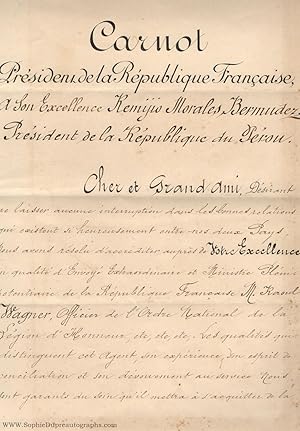 Carnot
Président de la République Française,
A Son Excellence Remijio Morales Bermudez
Président de la République du Pérou.
Cher et Grand Ami, Désirant
ne laisser aucune interruption dans les bonnes relations
qui existent si heureusement entre nos deux Pays,
Nous avons résolu d'accréditer auprès de Votre Excellence
en qualité d'Envoyé Extraordinaire et Ministre Pléni-
potentiaire de la République Française M. Raoul
Wagner, Officier de l'Ordre National de la
Légion d'Honneur, etc, etc, etc. Les qualités qui
distinguent cet Agent, son expérience, son esprit de
conciliation et son dévouement au service Nous
sont garants du soin qu'il mettra à s'acquitter de la
www.SophieDupreautographs.com